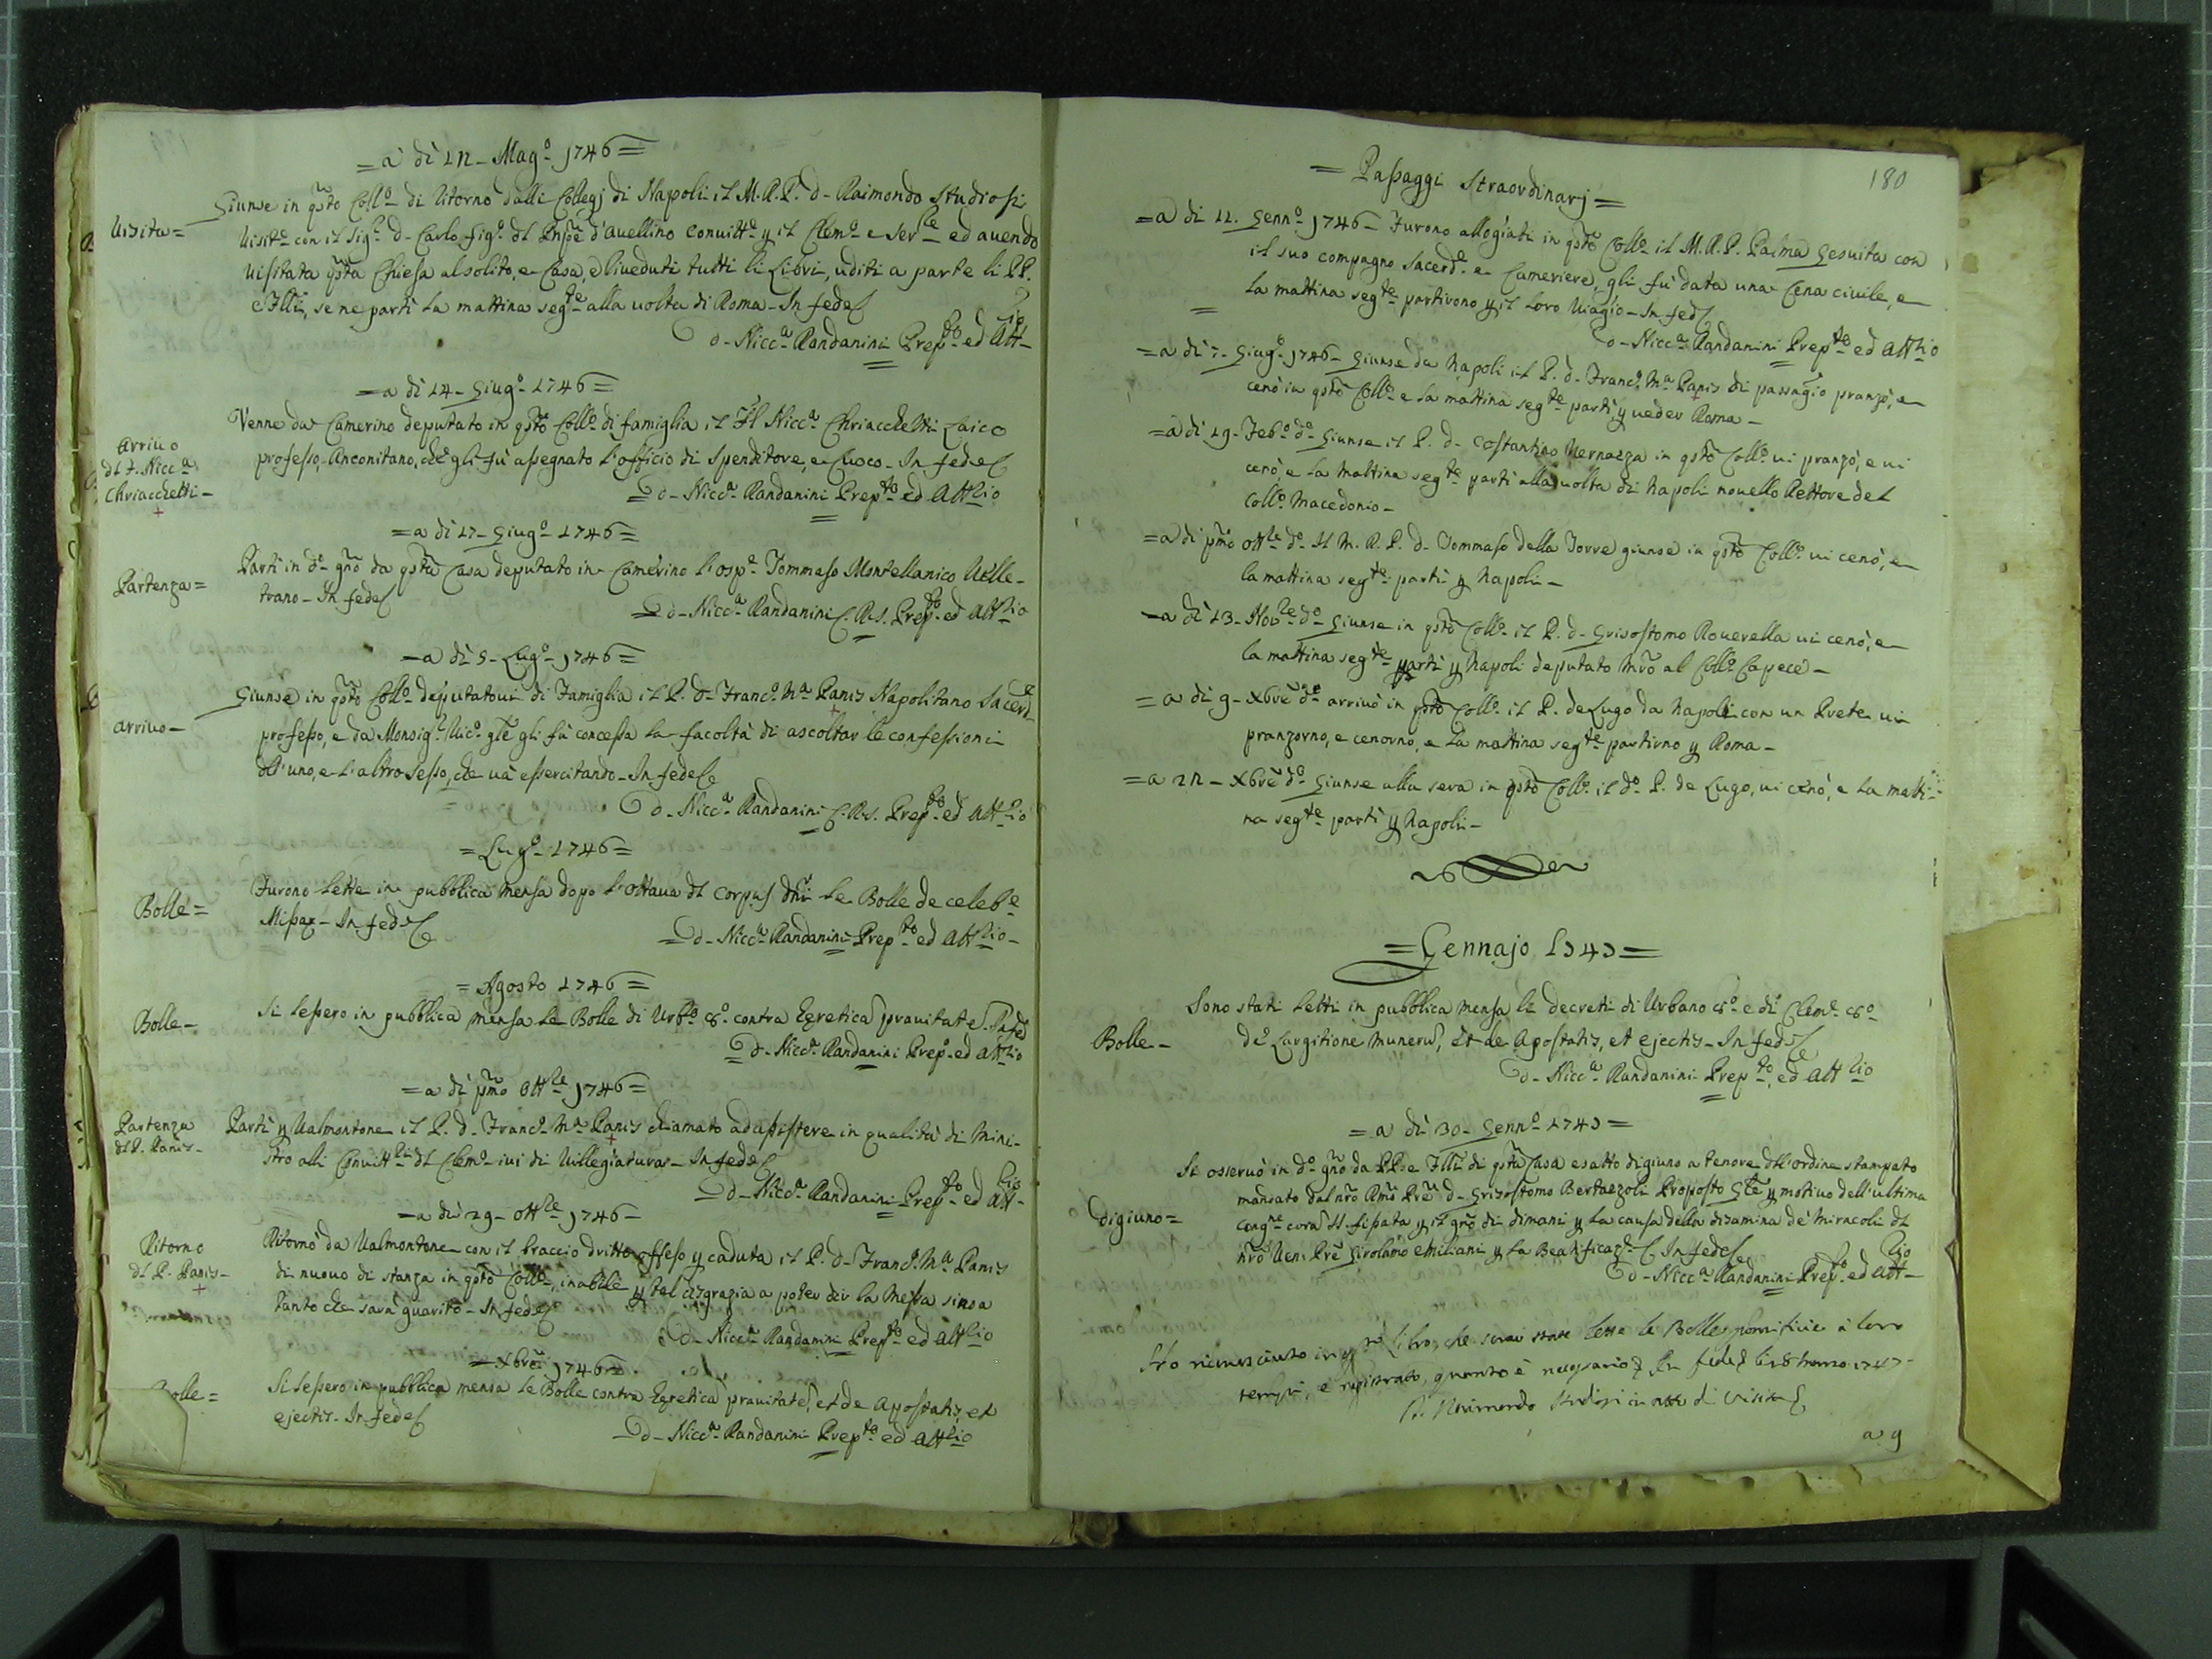 = a dì 12 - Mag.º 1746 =
Visita =
Giunse in qsto Coll.º di ritorno dalli Collegj di Napoli il M. R. P. d. Raimondo Studiosi
Visit.e con il Sig.r d. Carlo fig.º dl Pnspe d'Avellino Convitt.e p il Clem.º e Ser.le ed avendo
visitata qsta Chiesa al solito, e Casa, e riveduti tutti li Libri, uditi a parte li PP.
e Flli, se ne partì la mattina seg.te alla volta di Roma - In fede
d. Nicc.ª Randanini Prep.to ed Att.rio
= a dì 14 - Giug.º 1746 =
Arrivo
dl F. Nicc.ª
Chriacchetti -
Venne da Camerino deputato in qsto Coll.º di famiglia il Fl Nicc.ª Chriacchetti Laico
professo, Anconitano, che gli fù assegnato l'officio di Spenditore, e Cuoco - In fede
d. Nicc.ª Randanini Prep.to ed Att.rio
= a dì 17 - Giug.º 1746 =
Partenza =
Partì in d.º gno da qsta Casa deputato in Camerino l'osp.e Tommaso Montellanico Velle-
trano - In fede
d. Nicc.ª Randanini C. R. S. Prep.to ed Att.rio
= a dì 5 - Lug.º 1746 =
Arrivo -
Giunse in qsto Coll.º deputatovi di Famiglia il P. d. Franc.º Mª Panis Napolitano Sacerd.e
professo, e da Monsig.r Vic.º gle gli fù concessa la facoltà di ascoltar le confessioni
dll'uno, e l'altro sesso, che và essercitando - In fede
d. Nicc.ª Randanini C. R. S. Prep.to ed Att.rio
= Lug.º 1746 =
Bolle =
Furono lette in pubblica mensa dopo l'ottava dl Corpus Dni le Bolle de celeb.e
Missar - In fede
d. Nicc.ª Randanini Prep.to ed Att.rio -
= Agosto 1746 =
Bolle -
Si lessero in pubblica mensa le Bolle di Urb.º 8.º contra Egretica pravitate. In fede
d. Nicc.ª Randanini Prep.º ed Att.rio
= a dì pmo Ott.re 1746 =
Partenza
dl P. Panis -
Partì p Valmontone il P. d. Franc.º Mª Panis chiamato ad assistere in qualità di Mini-
stro alli Convitt.ri dl Clem.º ivi di Villegiatura - In fede
d. Nicc.ª Randanini Prep.to ed Att.rio -
= a dì 29 - Ott.re 1746 -
Ritorno
dl P. Panis -
Ritornò da Valmontone con il braccio dritto offeso p caduta il P. d. Franc.º Mª Panis
di nuovo di stanza in qsto Coll.º, inabile p tal disgrazia a poter dir la Messa sino a
tanto che sarà guarito - In fede
d. Nicc.ª Randanini Prep.to ed Att.rio
= Xbre 1746 =
Bolle =
Si lessero in pubblica mensa le Bolle contra Egretica pravitate, et de Apostatis, et
ejectis - In fede
d. Nicc.ª Randanini Prep.to ed Att.rio
180
= Passaggi Straordinarj =
= a dì 12. Genn.º 1746 - Furono allogiati in qsto Coll.º il M. R. P. Palma Gesuita con
il suo compagno Sacerd.e e Cameriere, gli fù data una Cena civile, e
la mattina seg.te partirono p il loro Viagio - In fede
d. Nicc.ª Randanini Prep.to ed Att.rio
= a dì 7 - Giug.º 1746 - Giunse da Napoli il P. d. Franc.º Mª Panis di passagio pranzò, e
cenò in qsto Coll.º e la mattina seg.te partì, p veder Roma -
= a dì 19 - Feb.º d.º Giunse il P. d. Costantino Vernazza in qsto Coll.º vi pranzò, e vi
cenò, e la mattina seg.te partì alla volta di Napoli novello Rettore del
Coll.º Macedonio -
= a dì pmo Ott.re d.º Il M. R. P. d. Tommaso della Torre giunse in qsto Coll.º vi cenò, e
la mattina seg.te partì p Napoli -
= a dì 13 - Nov.re d.º Giunse in qsto Coll.º il P. d. Grisostomo Roverella vi cenò, e
la mattina seg.te partì p Napoli deputato Mro al Coll.º Capece -
= a dì 9 - Xbre d.º arrivò in qsto Coll.º il P. de Lugo da Napoli con un Prete vi
pranzorno, e cenorno, e la mattina seg.te partirno p Roma -
= a 22 - Xbre d.º Giunse alla sera in qsto Coll.º il d.º P. de Lugo, vi cenò, e la matti-
na seg.te partì p Napoli -
= Gennajo 1747 =
Bolle -
Sono stati letti in pubblica mensa li decreti di Urbano 8.º e di Clem.e 8.º
de Largitione muneru, et de Apostatis, et ejectis - In fede
d. Nicc.ª Randanini Prep.to, ed Att.rio
= a dì 30 - Genn.º 1747 =
digiuno =
Si osservò in d.º gno da PP. e Flli di qsta Casa esatto digiuno a tenore dll'ordine stampato
mandato dal nro Rmo Pre d. Grisostomo Bertazzoli Proposto Gle p motivo dell'ultima
Cong.ne cora SS. fissata p il gno di dimani p la causa della disamina de' miracoli dl
nro Ven. Pre Girolamo Emiliani p la Beatificaz.e In fede
d. Nicc.ª Randanini Prep.to ed Att.rio -
Ho riconosciuto in qsto Libro, che sono state lette le Bolle pontificie a loro
tempi, e registrato, quanto è necessario. In fede li 8 Marzo 1747 -
D. Raimondo Studiosi in atto di Visita
a 9